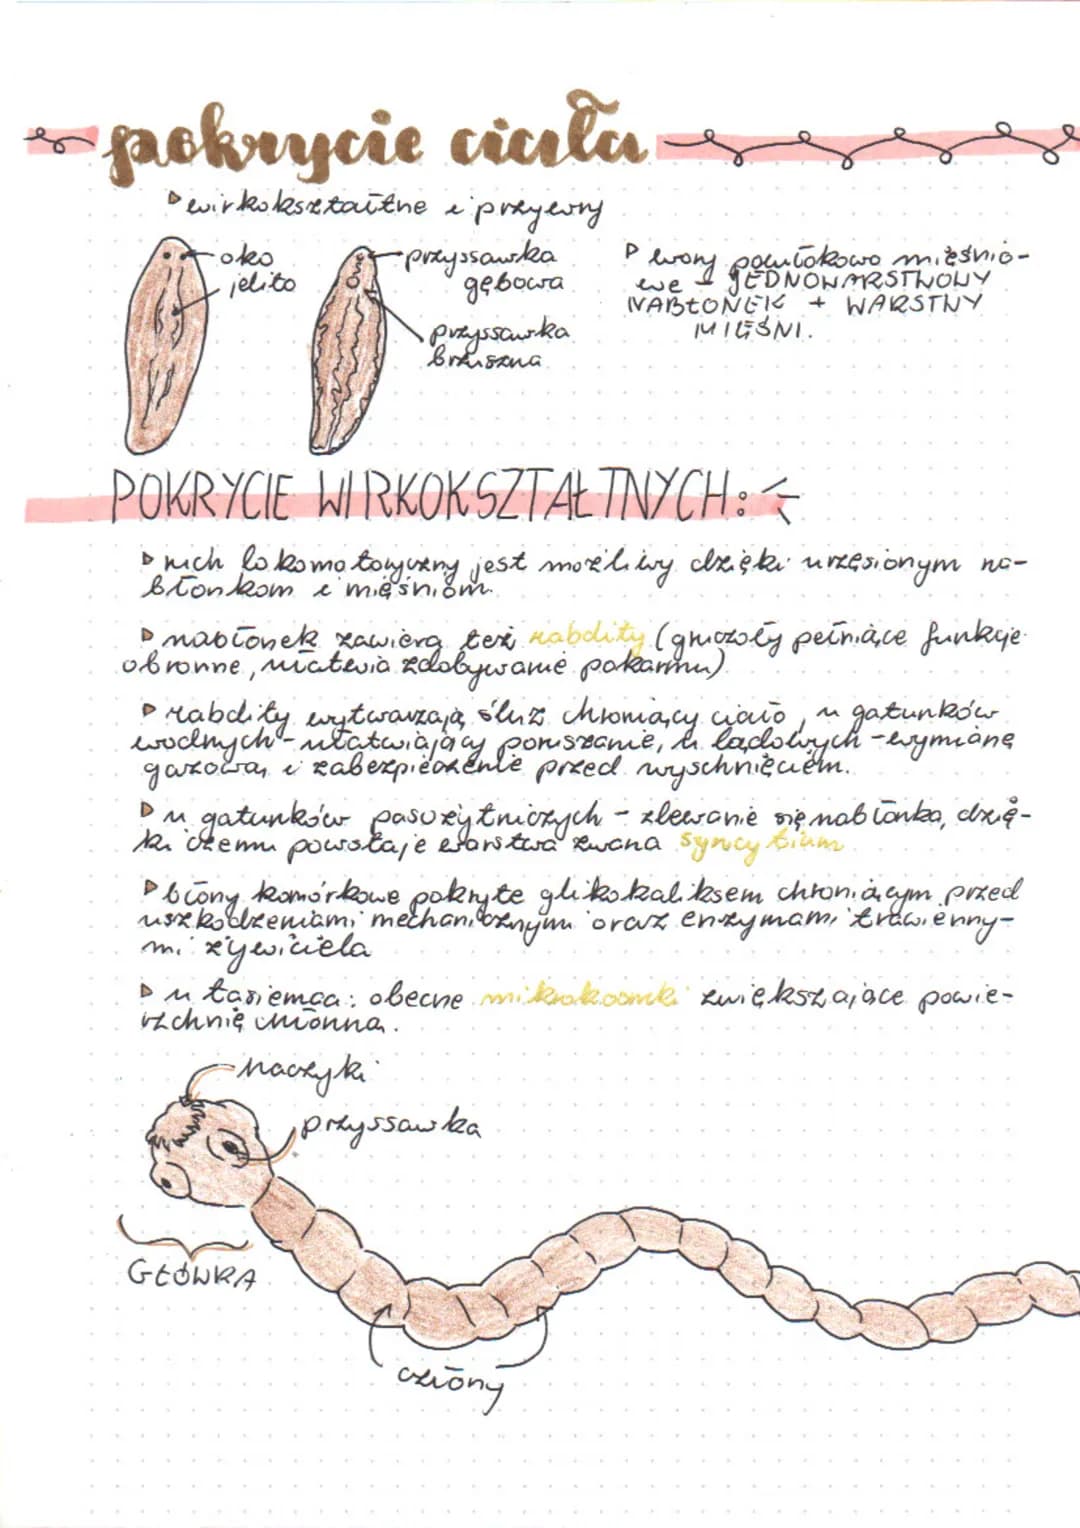 pokrycie ciała
▷ wirkokształtne i przywry
oko
jelito
przyssawka
gębowa
przyssawka
brzuszna
▷ wory powłokowo mięśnio-
we → JEDNOWARSTWOWY
NABŁONEK + WARSTWY
MIĘŚNI.
POKRYCIE WIRKOKSZTAŁTNYCH:
▷ ruch lokomotoryczny jest możliwy dzięki urzęsionym na-
błonkom i mięśniom.
▷ nabłonek zawiera też rabdity (gruczoły pełniące funkcje
obronne, ułatwia zdobywanie pokarmu)
▷ rabdity wytwarzają śluz chroniący ciało, u gatunków
wodnych - ułatwiający poruszanie, u lądowych - wymianę
gazową i zabezpieczenie przed wyschnięciem.
▷ u gatunków pasożytniczych - zlewanie się nabłonka, dzię-
ki czemu powstaje warstwa zwana syncytium
▷ błony komórkowe pokryte glikokaliksem chroniącym przed
uszkodzeniami mechanicznymi oraz enzymami trawienny-
mi żywiciela
▷ u tasiemca: obecne mikrokosmki zwiększające powie-
rzchnię chłonną.
haczyki
przyssawka
GŁÓWKA
człony